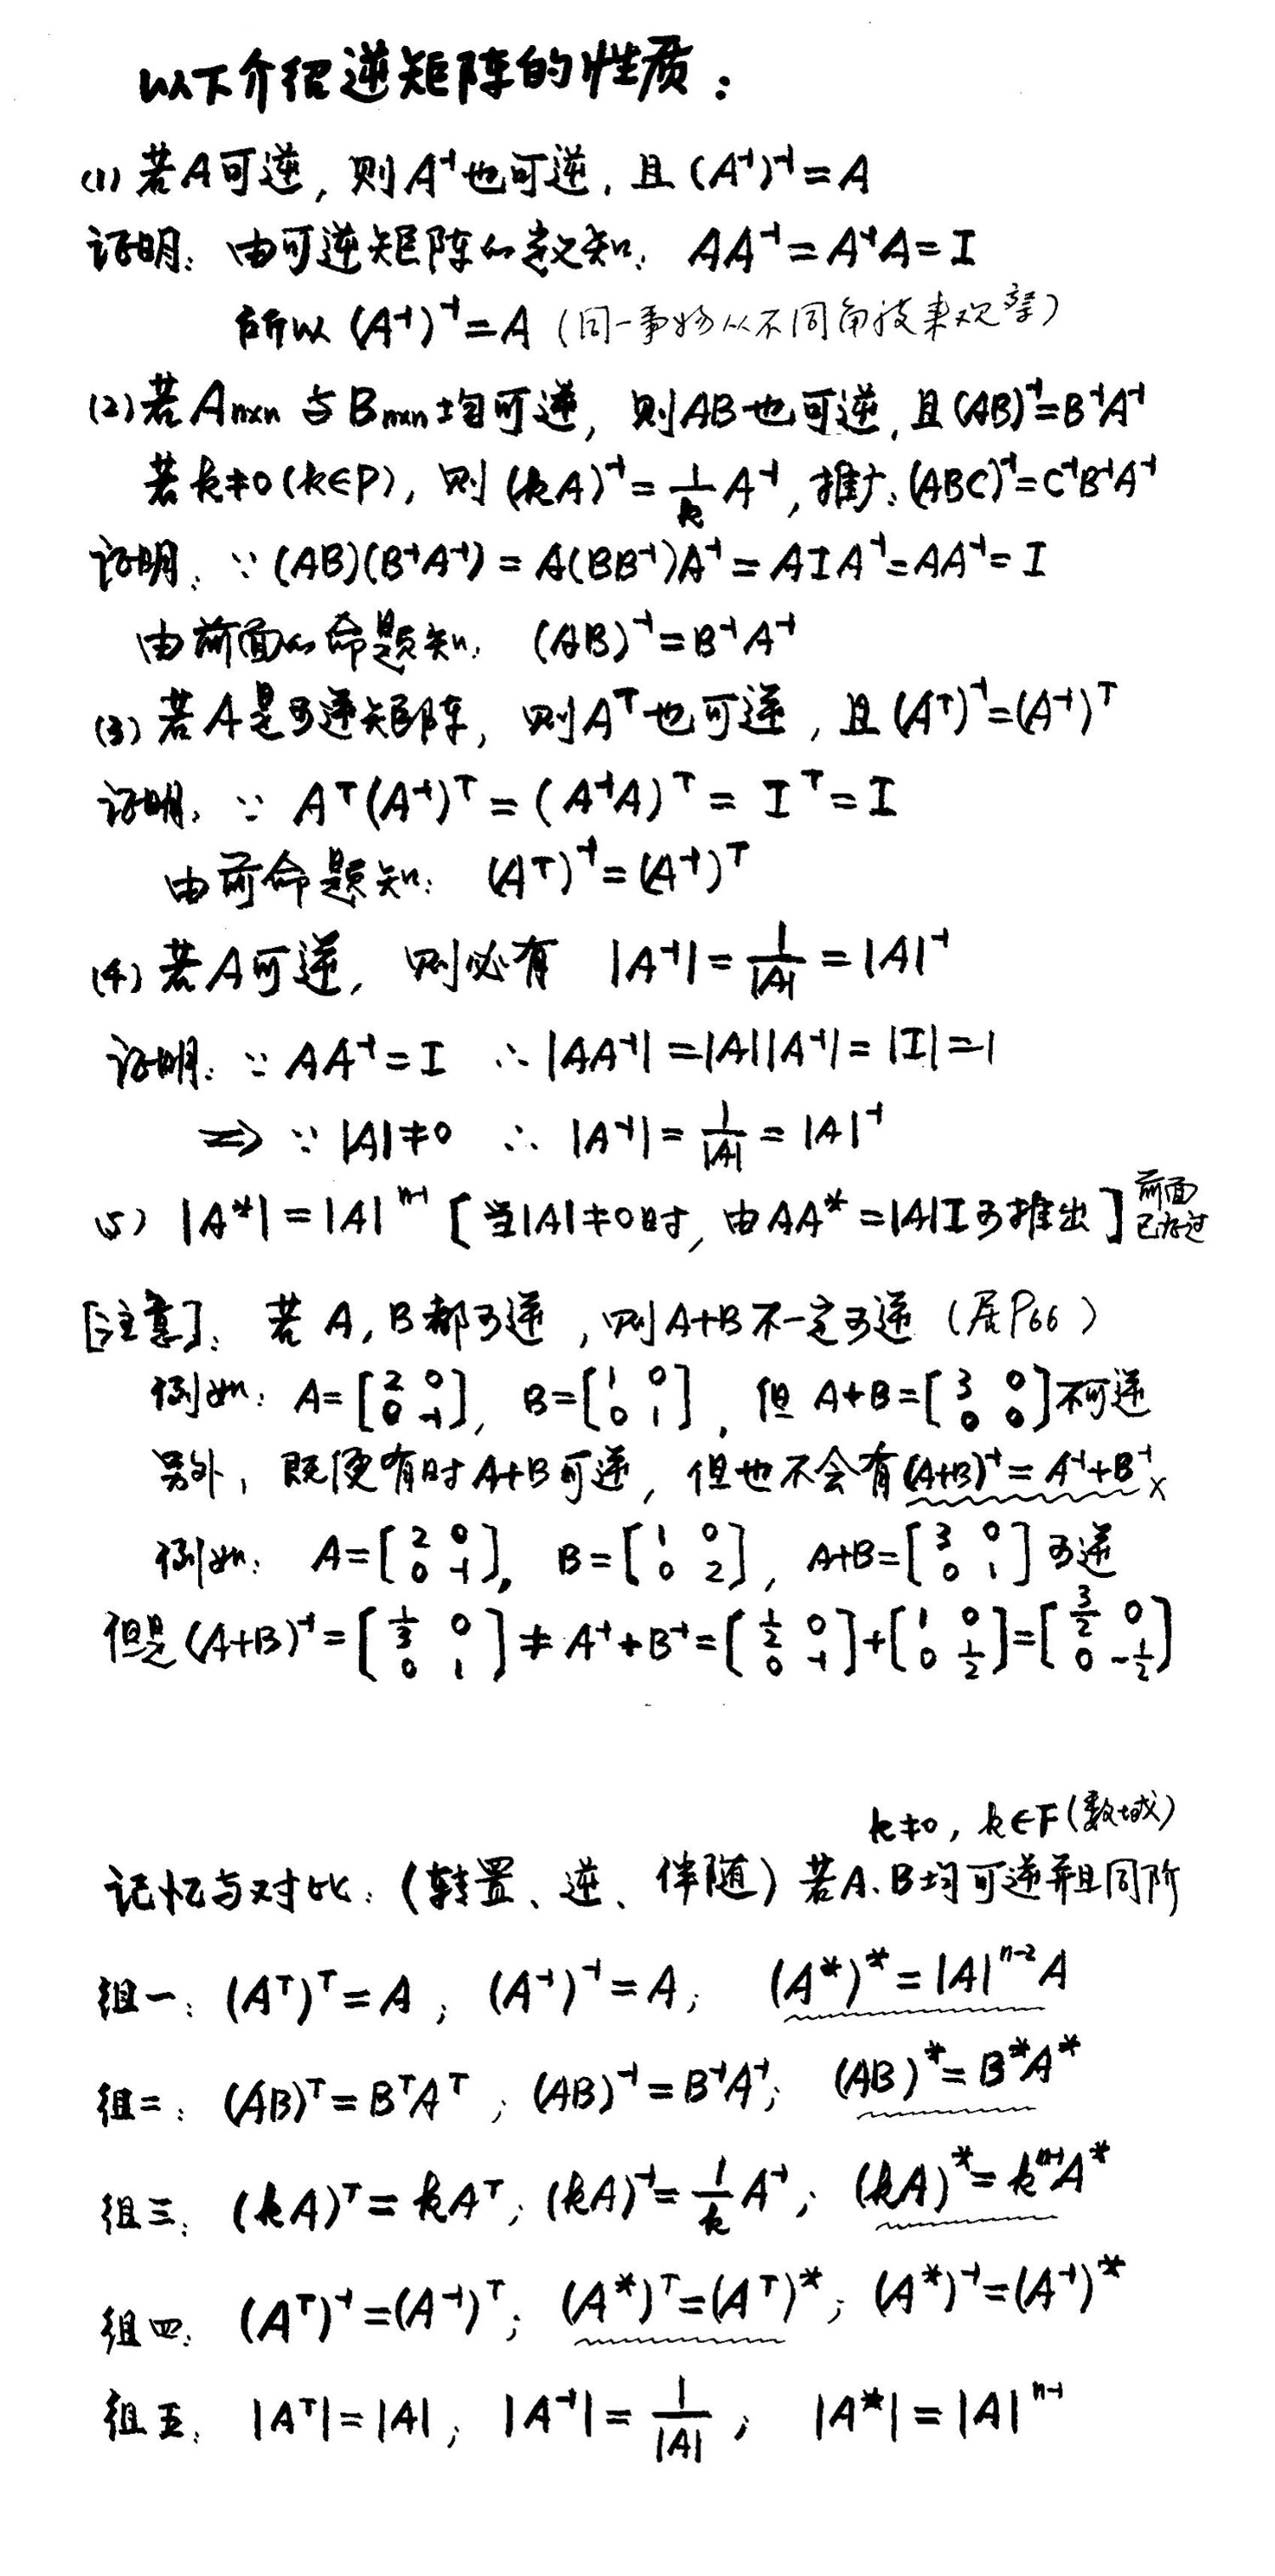 以下介绍逆矩阵的性质：
(1) 若A可逆, 则A⁻¹也可逆, 且 (A⁻¹)⁻¹=A
证明: 由可逆矩阵的定义知: AA⁻¹=A⁻¹A=I
所以 (A⁻¹)⁻¹=A (同一事物从不同角度来观察)
(2) 若Aₙₓₙ 与 Bₙₓₙ 均可逆, 则AB也可逆, 且(AB)⁻¹=B⁻¹A⁻¹
若k≠0(k∈P), 则 (kA)⁻¹=1/k A⁻¹, 推广: (ABC)⁻¹=C⁻¹B⁻¹A⁻¹
证明: ∵ (AB)(B⁻¹A⁻¹) = A(BB⁻¹)A⁻¹ = AIA⁻¹=AA⁻¹=I
由前面的命题知: (AB)⁻¹=B⁻¹A⁻¹
(3) 若A是可逆矩阵, 则Aᵀ也可逆, 且(Aᵀ)⁻¹=(A⁻¹)ᵀ
证明: ∵ Aᵀ(A⁻¹)ᵀ = (A⁻¹A)ᵀ = Iᵀ = I
由前命题知: (Aᵀ)⁻¹=(A⁻¹)ᵀ
(4) 若A可逆, 则必有 |A⁻¹|=1/|A|=|A|⁻¹
证明: ∵ AA⁻¹=I ∴ |AA⁻¹|=|A||A⁻¹|=|I|=1
⇒ ∵ |A|≠0 ∴ |A⁻¹|=1/|A|=|A|⁻¹
(5) |A*|=|A|ⁿ⁻¹ [当|A|≠0时, 由AA*=|A|I可推出] 前面
[注意]: 若 A, B都可逆, 则A+B不一定可逆 (居P66)
例如: A=[2 0; 0 -1], B=[1 0; 0 1], 但 A+B=[3 0; 0 0]不可逆
另外, 既便有时A+B可逆, 但也不会有(A+B)⁻¹=A⁻¹+B⁻¹ ×
例如: A=[2 0; 0 -1], B=[1 0; 0 2], A+B=[3 0; 0 1]可逆
但是(A+B)⁻¹=[1/3 0; 0 1]≠A⁻¹+B⁻¹=[1/2 0; 0 -1]+[1 0; 0 1/2]=[3/2 0; 0 -1/2]
k≠0, k∈F(数域)
记忆与对比: (转置、逆、伴随) 若A、B均可逆并且同阶
组一: (Aᵀ)ᵀ=A; (A⁻¹)⁻¹=A; (A*)*=|A|ⁿ⁻²A
组二: (AB)ᵀ=BᵀAᵀ; (AB)⁻¹=B⁻¹A⁻¹; (AB)*=B*A*
组三: (kA)ᵀ=kAᵀ; (kA)⁻¹=1/k A⁻¹; (kA)*=kⁿ⁻¹A*
组四: (Aᵀ)⁻¹=(A⁻¹)ᵀ; (A*)ᵀ=(Aᵀ)*; (A*)⁻¹=(A⁻¹)*
组五: |Aᵀ|=|A|; |A⁻¹|=1/|A|; |A*|=|A|ⁿ⁻¹